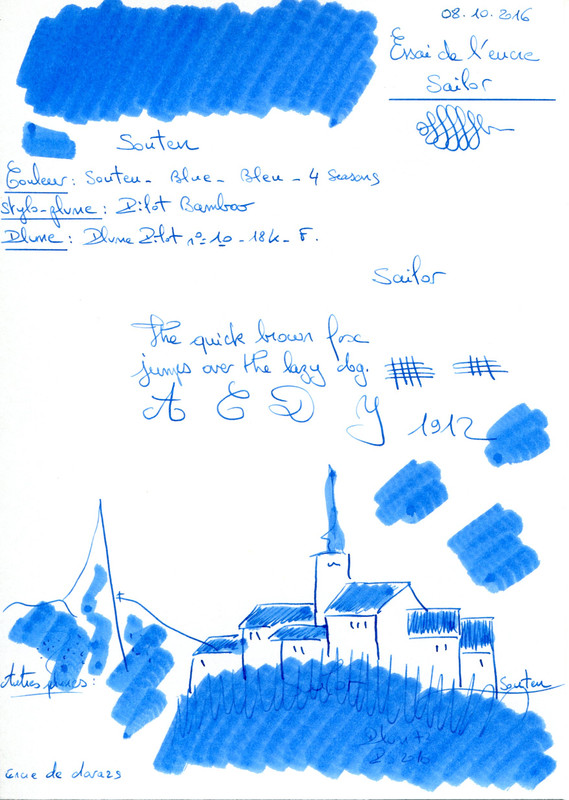 08.10.2016
Essai de l'encre
Sailor
Souten
Couleur: Souten - Blue - Bleu - 4 Seasons
Stylo-plume: Pilot Bamboo
Plume: Plume Pilot n°10 - 18k - F.
Sailor
The quick brown fox
jumps over the lazy dog.
A E D Y 1912
Autres plumes:
Souten
2016